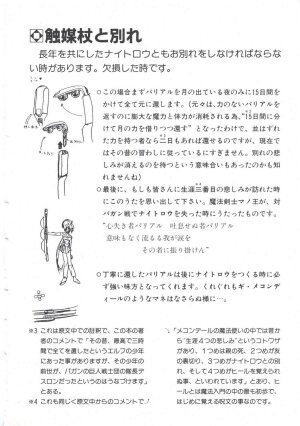 触媒杖と別れ
長年を共にしたナイトロウともお別れをしなければならな
い時があります。欠損した時です。
○この場合まずバリアルを月の出ている夜のみに15日間を
かけて全て元に還します。(元々は、力のないバリアルを
返すのに膨大な魔力と体力が消費される為、"15日間に分
けて月の力を借りつつ還す"となったわけで、並はずれ
た力を持つ者なら二日もあれば還せるのですが、現在で
はその昔の習わしに従っているにすぎません。別れの悲
しみが消えるのを待つという意味合いもあったのかも知
れませんね)
○最後に、もしも皆さんに生涯三番目の悲しみが訪れた時に
このうたを思い出して下さい。魔法剣士マノ王が、対
バガン戦でナイトロウを失った時にうたったものです。
"心失き者バリアル 吐息せぬ者バリアル
意味もなく流るる我が涙を
その者に振り掛けん"
○丁寧に還したバリアルは後にナイトロウをつくる時に必
ず強い味方となってくれます。くれぐれもギ・メコンデ
ィールのようなマネはなさらぬ様に…。
※3 これは原文中での註釈で、この本の著
者のコメントで「その昔、最高で三時
間で全てを還したというエルフの少年
にあった事がありますが、その少年の
前世が、バガンの巨人戦士団の隊長テ
スロンだったというのはうなづけます」
とある。
※4 これも同じく原文中からのコメントで、
「メコンテールの魔法使いの中では昔か
ら"生涯4つの悲しみ"というコトワザ
があり、1つめは親の死、2つめが友
の裏切り、3つめがナイトロウとの別
れ、そして4つめがヒールを覚えられ
ぬ事、といわれています」とあり、ヒ
ールとは魔法入門の中の最も初歩で、
はじめに覚える呪文の事なのです。